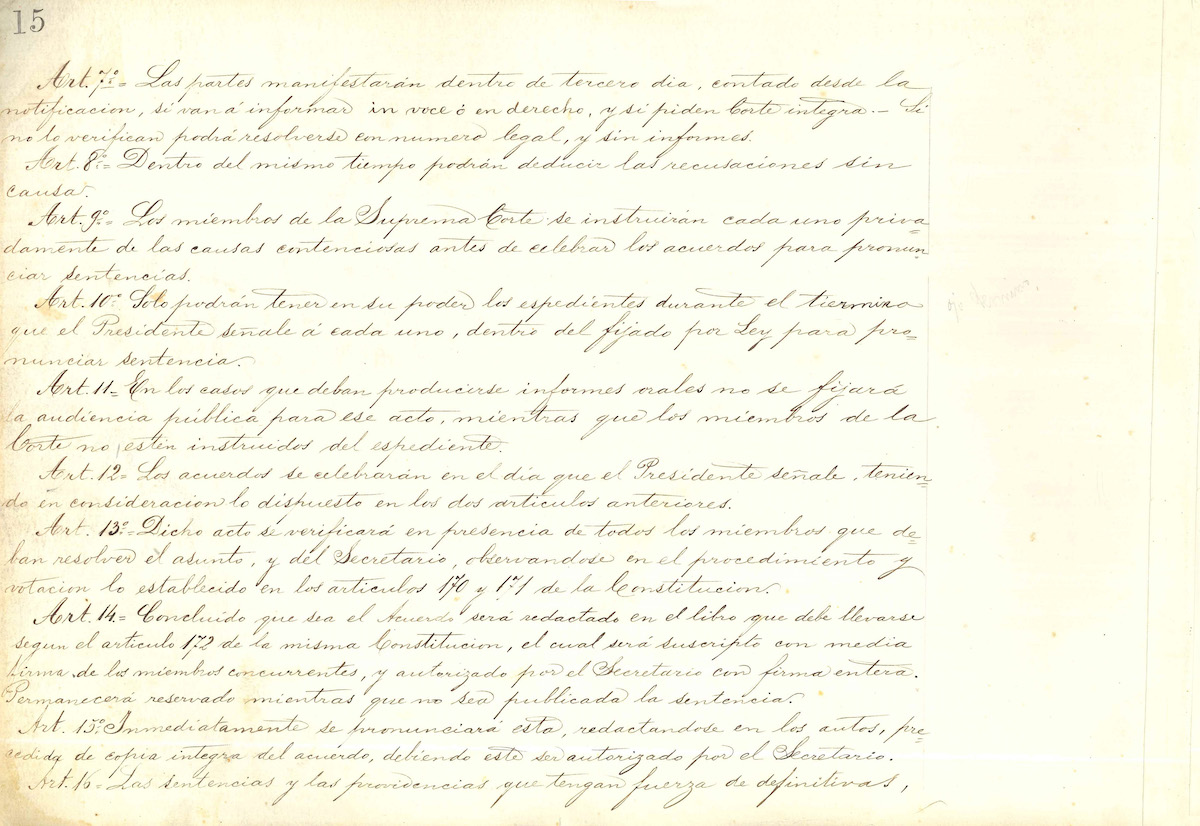 15
Art. 7º= Las partes manifestarán dentro de tercero dia, contado desde la
notificacion, si van á informar in voce ó en derecho, y si piden Corte integra.— Si
no lo verifican podrá resolverse con numero legal, y sin informes.
Art. 8º= Dentro del mismo tiempo podrán deducir las recusaciones sin
causa.
Art. 9º= Los miembros de la Suprema Corte se instruirán cada uno priva=
damente de las causas contenciosas antes de celebrar los acuerdos para pronun=
ciar sentencias.
Art. 10º Solo podrán tener en su poder los espedientes durante el tiermino
que el Presidente señale á cada uno, dentro del fijado por Ley para pro=
nunciar sentencia.
Art. 11= En los casos que deban producirse informes orales no se fijará
la audiencia pública para ese acto, mientras que los miembros de la
Corte no estén instruidos del espediente.
Art. 12= Los acuerdos se celebrarán en el dia que el Presidente señale, tenien=
do en consideracion lo dispuesto en los dos articulos anteriores.
Art. 13º= Dicho acto se verificará en presencia de todos los miembros que de=
ban resolver el asunto, y del Secretario, observandose en el procedimiento y
votacion lo establecido en los articulos 170 y 171 de la Constitucion.
Art. 14= Concluido que sea el Acuerdo será redactado en el libro que debe llevarse
segun el articulo 172 de la misma Constitucion, el cual será suscripto con media
firma de los miembros concurrentes, y autorizado por el Secretario con firma entera.
Permanecerá reservado mientras que no sea publicada la sentencia.
Art. 15º Inmediatamente se pronunciará esta, redactandose en los autos, pre=
cedida de copia integra del acuerdo, debiendo este ser autorizado por el Secretario.
Art. 16= Las sentencias y las providencias que tengan fuerza de definitivas,